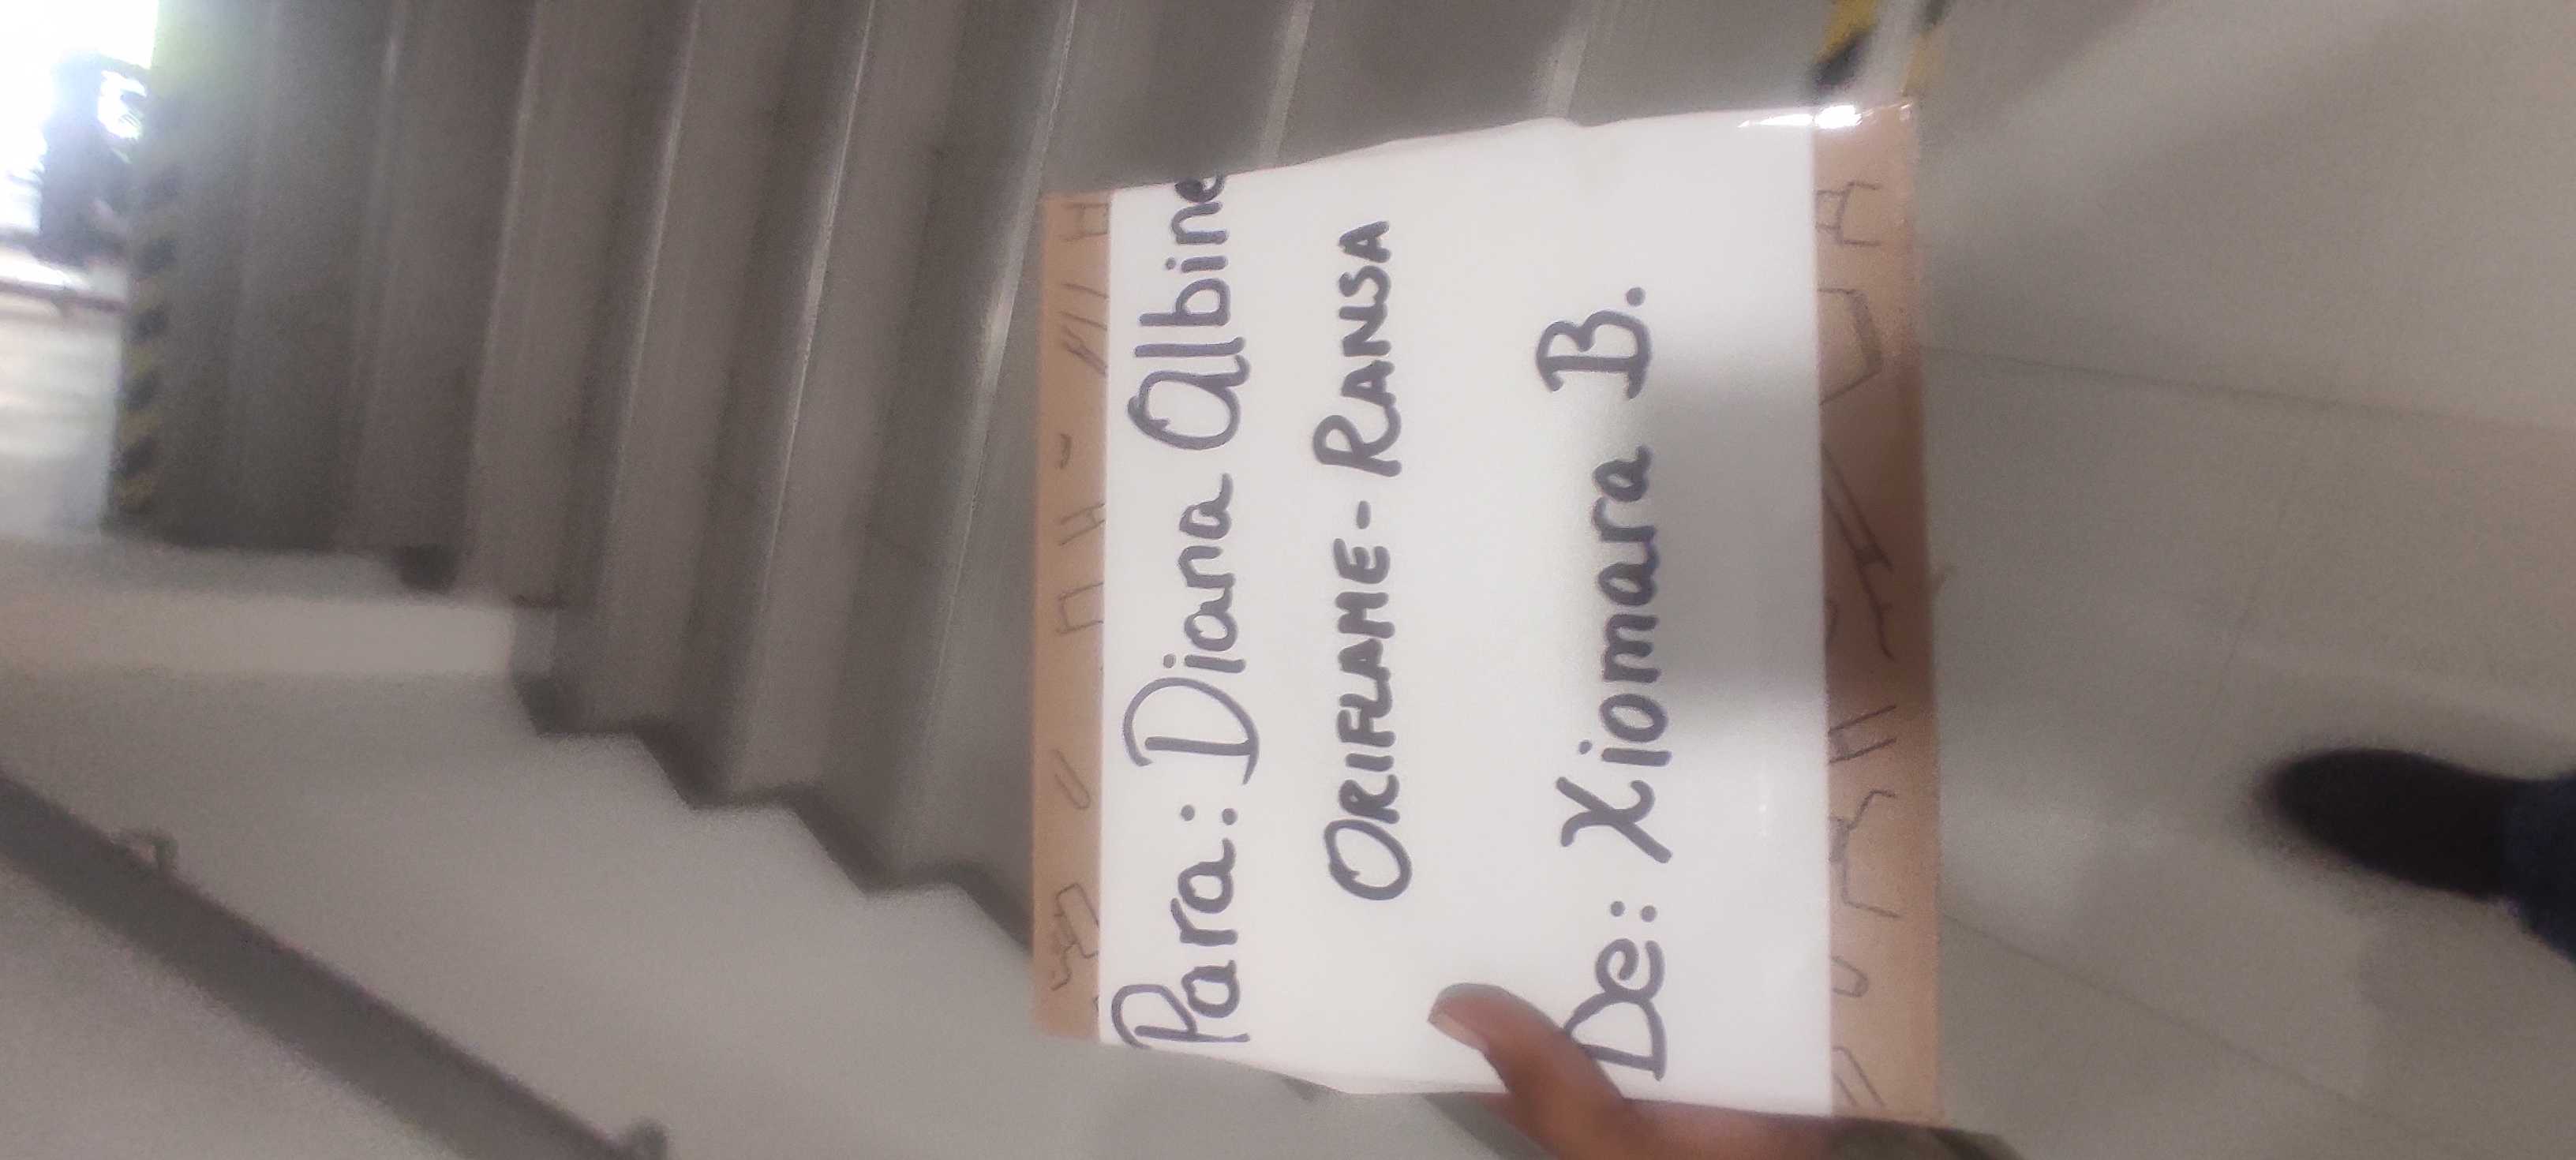 Para: Diana Albine
ORIFLAME - RANSA
De: Xiomara B.